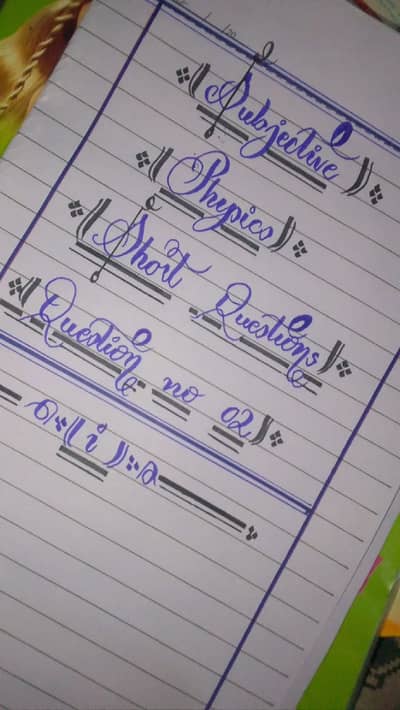 (Subjective)
(Physics)
(Short Questions)
(Question no 02)
(i)